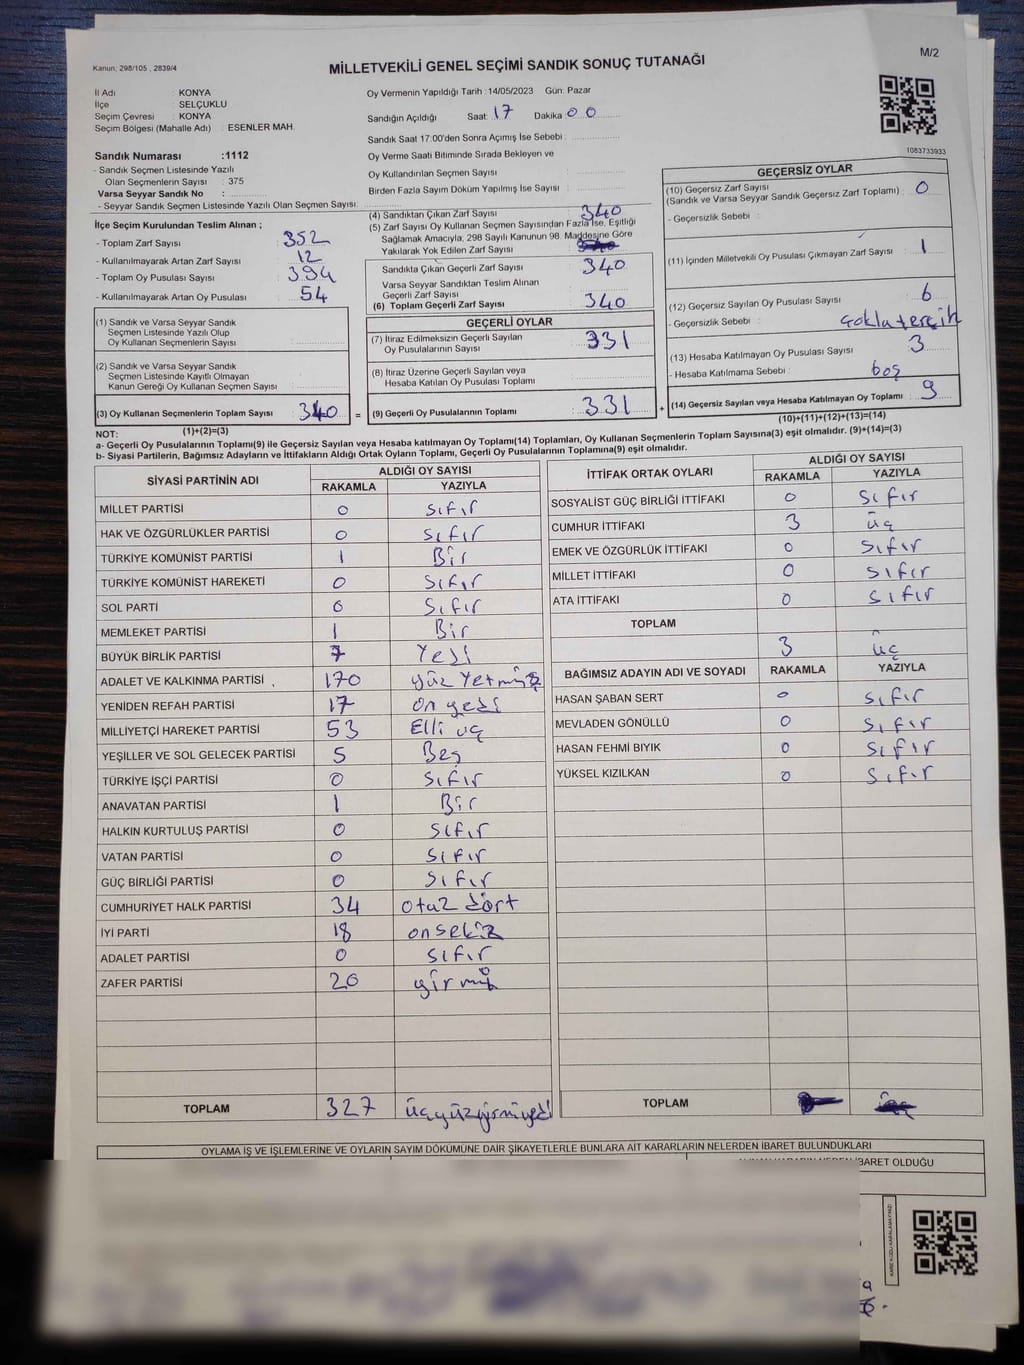 Kanun: 298/105 , 2839/4
MİLLETVEKİLİ GENEL SEÇİMİ SANDIK SONUÇ TUTANAĞI
M/2
İl Adı : KONYA
İlçe SELÇUKLU
Seçim Çevresi : KONYA
Seçim Bölgesi (Mahalle Adı) : ESENLER MAH.
Oy Vermenin Yapıldığı Tarih :14/05/2023 Gün: Pazar
Sandığın Açıldığı Saat: 17 Dakika 00
Sandık Saat 17:00'den Sonra Açımış İse Sebebi :
Oy Verme Saati Bitiminde Sırada Bekleyen ve
Oy Kullandırılan Seçmen Sayısı :
Birden Fazla Sayım Döküm Yapılmış İse Sayısı :
1083733933
Sandık Numarası :1112
- Sandık Seçmen Listesinde Yazılı
Olan Seçmenlerin Sayısı : 375
Varsa Seyyar Sandık No :
- Seyyar Sandık Seçmen Listesinde Yazılı Olan Seçmen Sayısı:
İlçe Seçim Kurulundan Teslim Alınan ;
- Toplam Zarf Sayısı : 352
- Kullanılmayarak Artan Zarf Sayısı : 12
- Toplam Oy Pusulası Sayısı : 394
- Kullanılmayarak Artan Oy Pusulası : 54
(1) Sandık ve Varsa Seyyar Sandık
Seçmen Listesinde Yazılı Olup
Oy Kullanan Seçmenlerin Sayısı :
(2) Sandık ve Varsa Seyyar Sandık
Seçmen Listesinde Kayıtlı Olmayan
Kanun Gereği Oy Kullanan Seçmen Sayısı :
(3) Oy Kullanan Seçmenlerin Toplam Sayısı : 340 =
(1)+(2)=(3)
(4) Sandıktan Çıkan Zarf Sayısı : 340
(5) Zarf Sayısı Oy Kullanan Seçmen Sayısından Fazla İse, Eşitliği
Sağlamak Amacıyla, 298 Sayılı Kanunun 98. Maddesine Göre
Yakılarak Yok Edilen Zarf Sayısı :
Sandıkta Çıkan Geçerli Zarf Sayısı : 340
Varsa Seyyar Sandıktan Teslim Alınan
Geçerli Zarf Sayısı :
(6) Toplam Geçerli Zarf Sayısı : 340
GEÇERLİ OYLAR
(7) İtiraz Edilmeksizin Geçerli Sayılan
Oy Pusulalarının Sayısı : 331
(8) İtiraz Üzerine Geçerli Sayılan veya
Hesaba Katılan Oy Pusulası Toplamı :
(9) Geçerli Oy Pusulalarının Toplamı : 331 +
GEÇERSİZ OYLAR
(10) Geçersiz Zarf Sayısı : 0
(Sandık ve Varsa Seyyar Sandık Geçersiz Zarf Toplamı)
- Geçersizlik Sebebi :
(11) İçinden Milletvekili Oy Pusulası Çıkmayan Zarf Sayısı : 1
(12) Geçersiz Sayılan Oy Pusulası Sayısı : 6
- Geçersizlik Sebebi : çoklu tercih
(13) Hesaba Katılmayan Oy Pusulası Sayısı : 3
- Hesaba Katılmama Sebebi : boş
(14) Geçersiz Sayılan veya Hesaba Katılmayan Oy Toplamı : 9
(10)+(11)+(12)+(13)=(14)
NOT:
a- Geçerli Oy Pusulalarının Toplamı(9) ile Geçersiz Sayılan veya Hesaba katılmayan Oy Toplamı(14) Toplamları, Oy Kullanan Seçmenlerin Toplam Sayısına(3) eşit olmalıdır. (9)+(14)=(3)
b- Siyasi Partilerin, Bağımsız Adayların ve İttifakların Aldığı Ortak Oyların Toplamı, Geçerli Oy Pusulalarının Toplamına(9) eşit olmalıdır.
SİYASİ PARTİNİN ADI ALDIĞI OY SAYISI
RAKAMLA YAZIYLA
MİLLET PARTİSİ 0 sıfır
HAK VE ÖZGÜRLÜKLER PARTİSİ 0 sıfır
TÜRKİYE KOMÜNİST PARTİSİ 1 Bir
TÜRKİYE KOMÜNİST HAREKETİ 0 sıfır
SOL PARTİ 0 sıfır
MEMLEKET PARTİSİ 1 Bir
BÜYÜK BİRLİK PARTİSİ 7 Yedi
ADALET VE KALKINMA PARTİSİ 170 yüz yetmiş
YENİDEN REFAH PARTİSİ 17 on yedi
MİLLİYETÇİ HAREKET PARTİSİ 53 Elli üç
YEŞİLLER VE SOL GELECEK PARTİSİ 5 Beş
TÜRKİYE İŞÇİ PARTİSİ 0 sıfır
ANAVATAN PARTİSİ 1 Bir
HALKIN KURTULUŞ PARTİSİ 0 sıfır
VATAN PARTİSİ 0 sıfır
GÜÇ BİRLİĞİ PARTİSİ 0 sıfır
CUMHURİYET HALK PARTİSİ 34 otuz dört
İYİ PARTİ 18 onsekiz
ADALET PARTİSİ 0 sıfır
ZAFER PARTİSİ 20 yirmi
TOPLAM 327 üçyüzyirmiyedi
İTTİFAK ORTAK OYLARI ALDIĞI OY SAYISI
RAKAMLA YAZIYLA
SOSYALİST GÜÇ BİRLİĞİ İTTİFAKI 0 sıfır
CUMHUR İTTİFAKI 3 üç
EMEK VE ÖZGÜRLÜK İTTİFAKI 0 sıfır
MİLLET İTTİFAKI 0 sıfır
ATA İTTİFAKI 0 sıfır
TOPLAM 3 üç
BAĞIMSIZ ADAYIN ADI VE SOYADI RAKAMLA YAZIYLA
HASAN ŞABAN SERT 0 sıfır
MEVLADEN GÖNÜLLÜ 0 sıfır
HASAN FEHMİ BIYIK 0 sıfır
YÜKSEL KIZILKAN 0 sıfır
TOPLAM
OYLAMA İŞ VE İŞLEMLERİNE VE OYLARIN SAYIM DÖKÜMÜNE DAİR ŞİKAYETLERLE BUNLARA AİT KARARLARIN NELERDEN İBARET BULUNDUKLARI
İBARET OLDUĞU